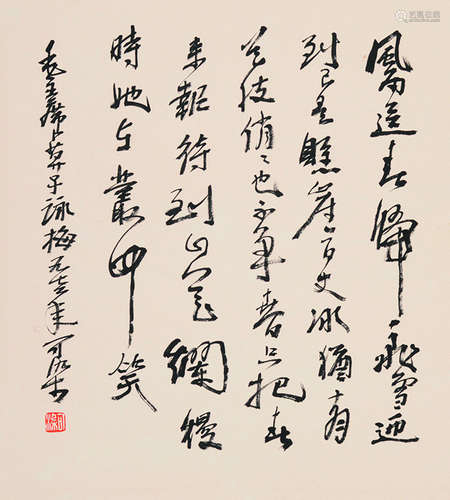 風雨送春歸飛雪迎
到已是懸崖百丈冰猶有
花枝俏〻也不爭春只把春
來報待到山花爛漫
時她在叢中笑
毛主席卜算子詠梅年可染